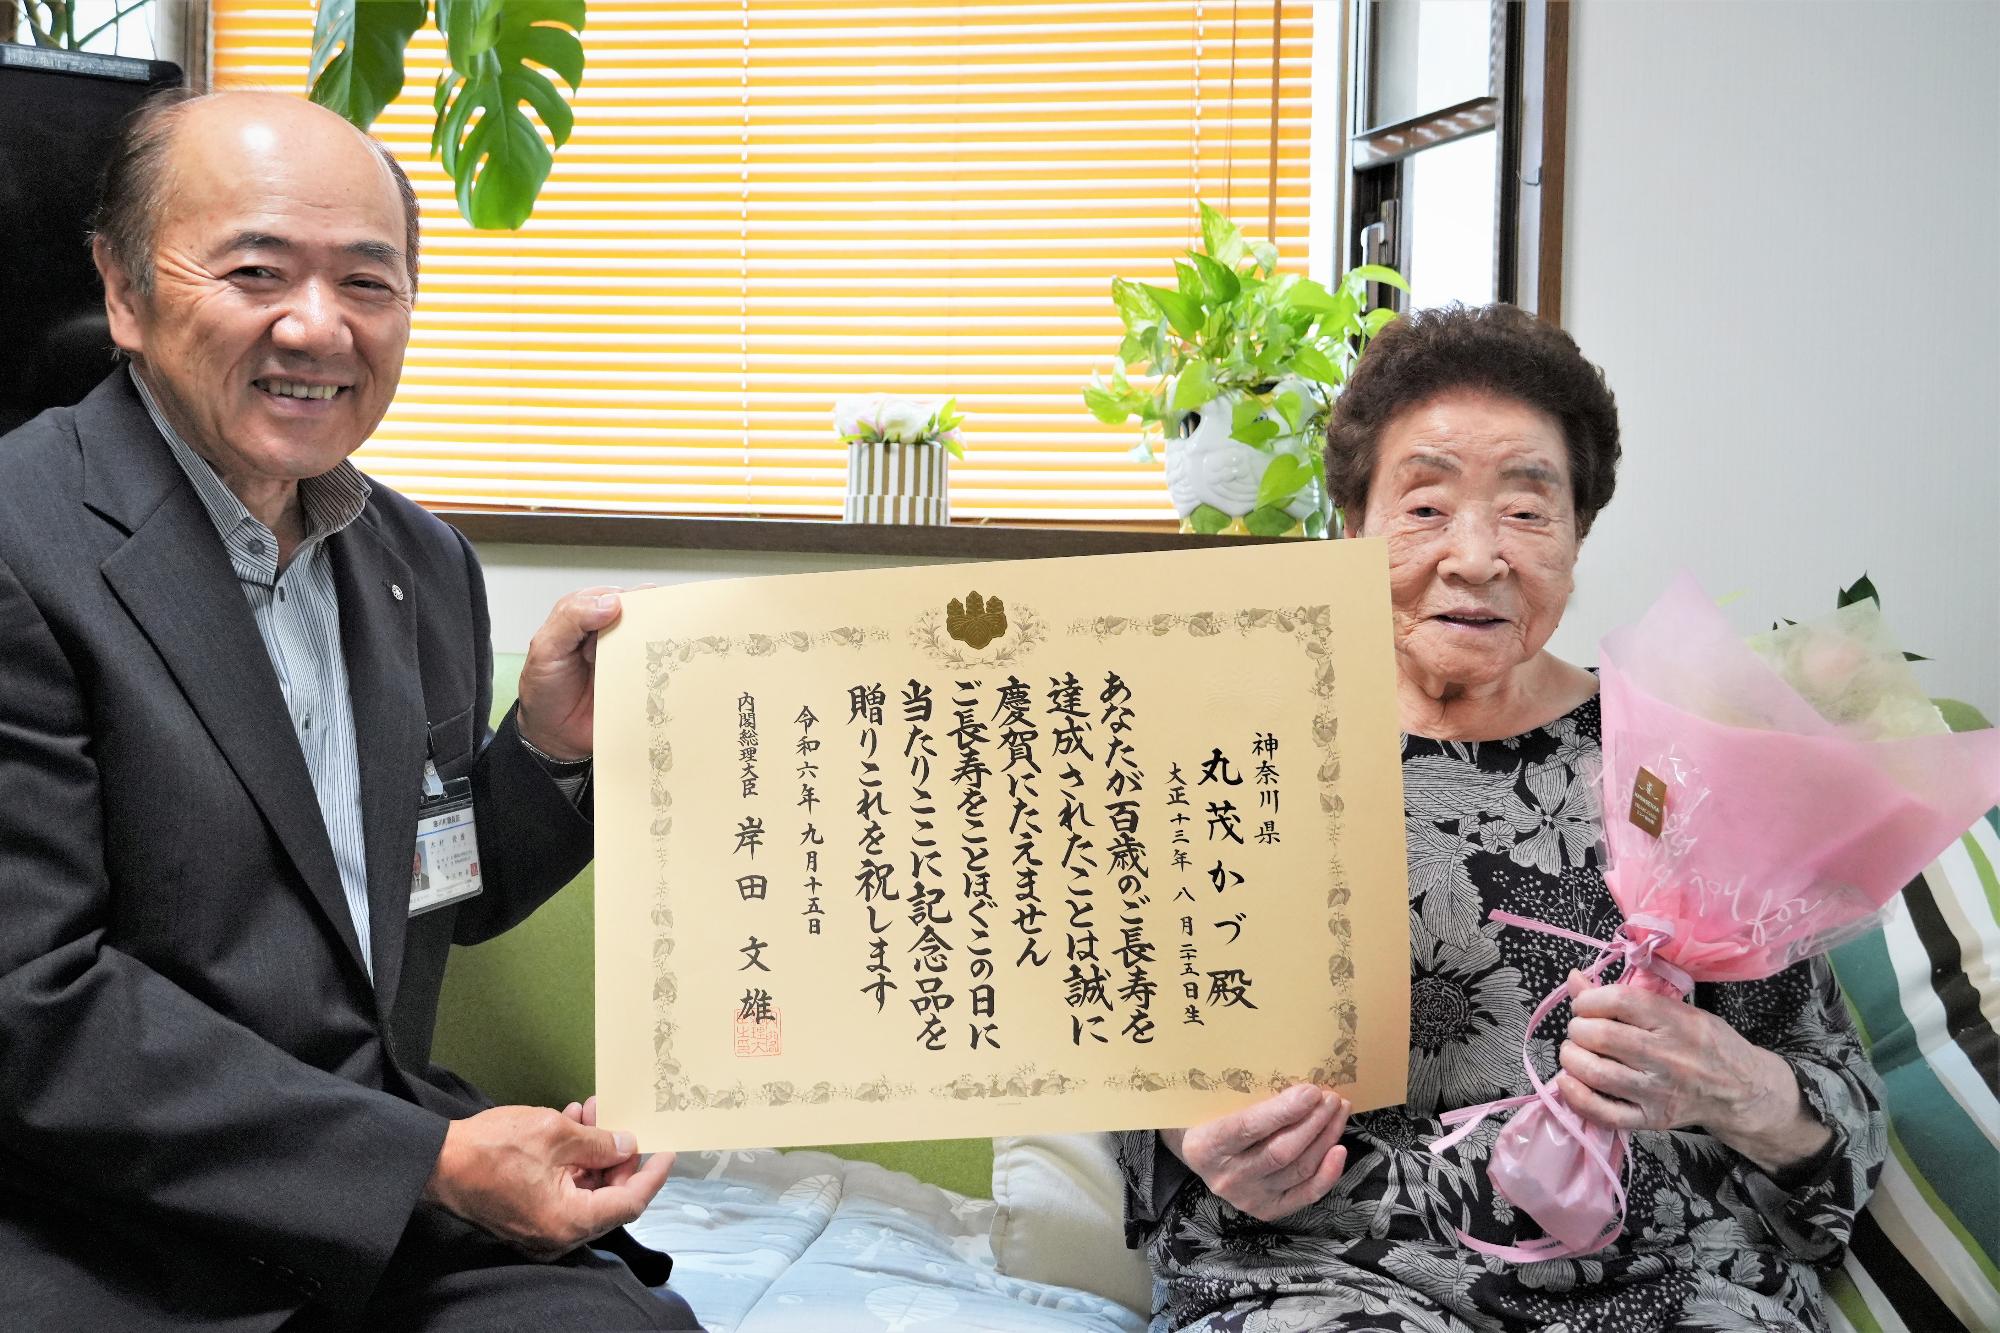 神奈川県
丸茂かづ殿
大正十三年八月二十五日生
あなたが百歳のご長寿を
達成されたことは誠に
慶賀にたえません
ご長寿をことほぐこの日に
当たりここに記念品を
贈りこれを祝します
令和六年九月十五日
内閣総理大臣 岸田文雄
joy for